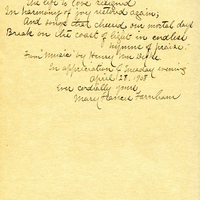 The life to love resigned
In harmony of joy retuned again;
And songs that cheered our mortal days
Break on the coast of light in endless
hymns of praise."
From "Music" by Henry Van Dyke
In appreciation of Tuesday evening
April 28. 1908
Ever cordially yours,
Mary Hance Farnham